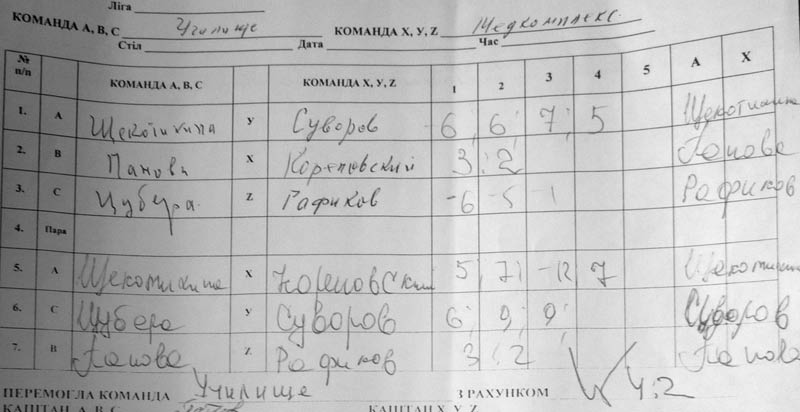 Ліга
КОМАНДА А, В, С Училище КОМАНДА Х, У, Z Медкомплекс.
Стіл Дата Час
№ п/п КОМАНДА А, В, С КОМАНДА Х, У, Z 1 2 3 4 5 А Х
1. А Щекотихина У Суворов 6; 6; 7; 5 Щекотихина
2. В Панова Х Кореновский 3:2 Панова
3. С Цубера. Z Рафиков -6 -5 -1 Рафиков
4. Пара
5. А Щекотихина Х Кореновский 5; 7; -12 7 Щекотихина
6. С Цубера У Суворов 6; 9; 9; Суворов
7. В Панова Z Рафиков 3:2 Панова
ПЕРЕМОГЛА КОМАНДА Училище З РАХУНКОМ 4:2
КАПІТАН А, В, С КАПІТАН Х, У, Z